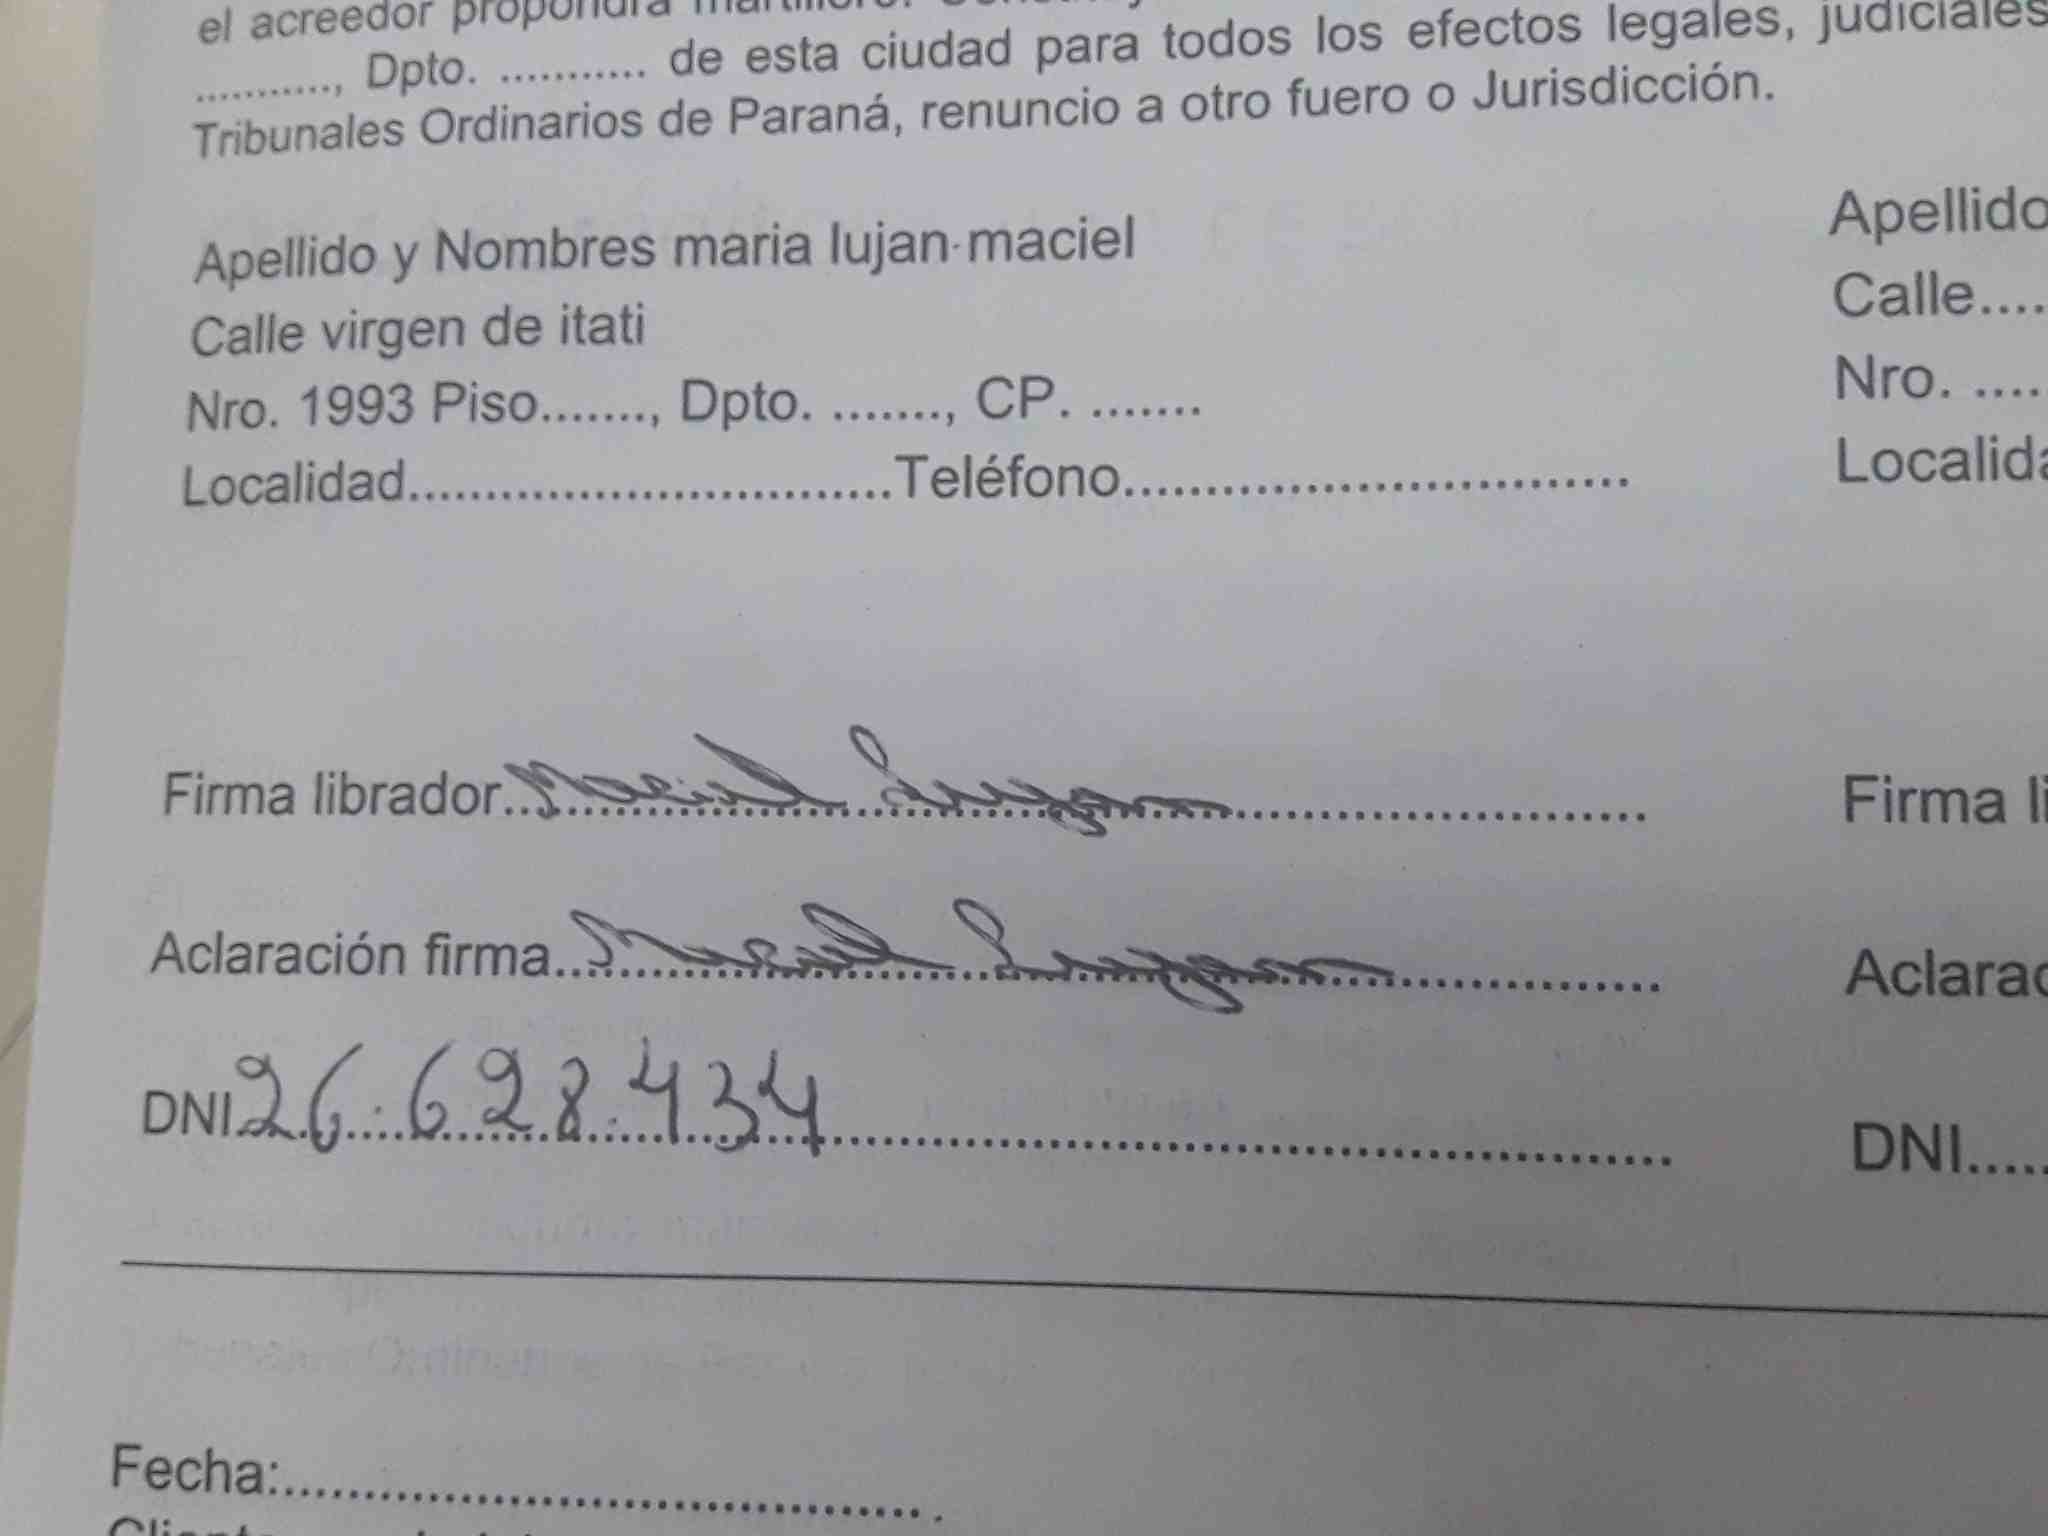 el acreedor propondrá
..........., Dpto. ........... de esta ciudad para todos los efectos legales, judiciales
Tribunales Ordinarios de Paraná, renuncio a otro fuero o Jurisdicción.
Apellido y Nombres maria lujan maciel
Apellido
Calle virgen de itati
Calle....
Nro. 1993 Piso......., Dpto. ......., CP. .......
Nro. ....
Localidad..............................Teléfono...............................
Localida
Firma librador..Maciel Lujan..........................
Firma li
Aclaración firma..Maciel Lujan.................
Aclarac
DNI 26.628.434..................................................
DNI.....
Fecha:........................................ .